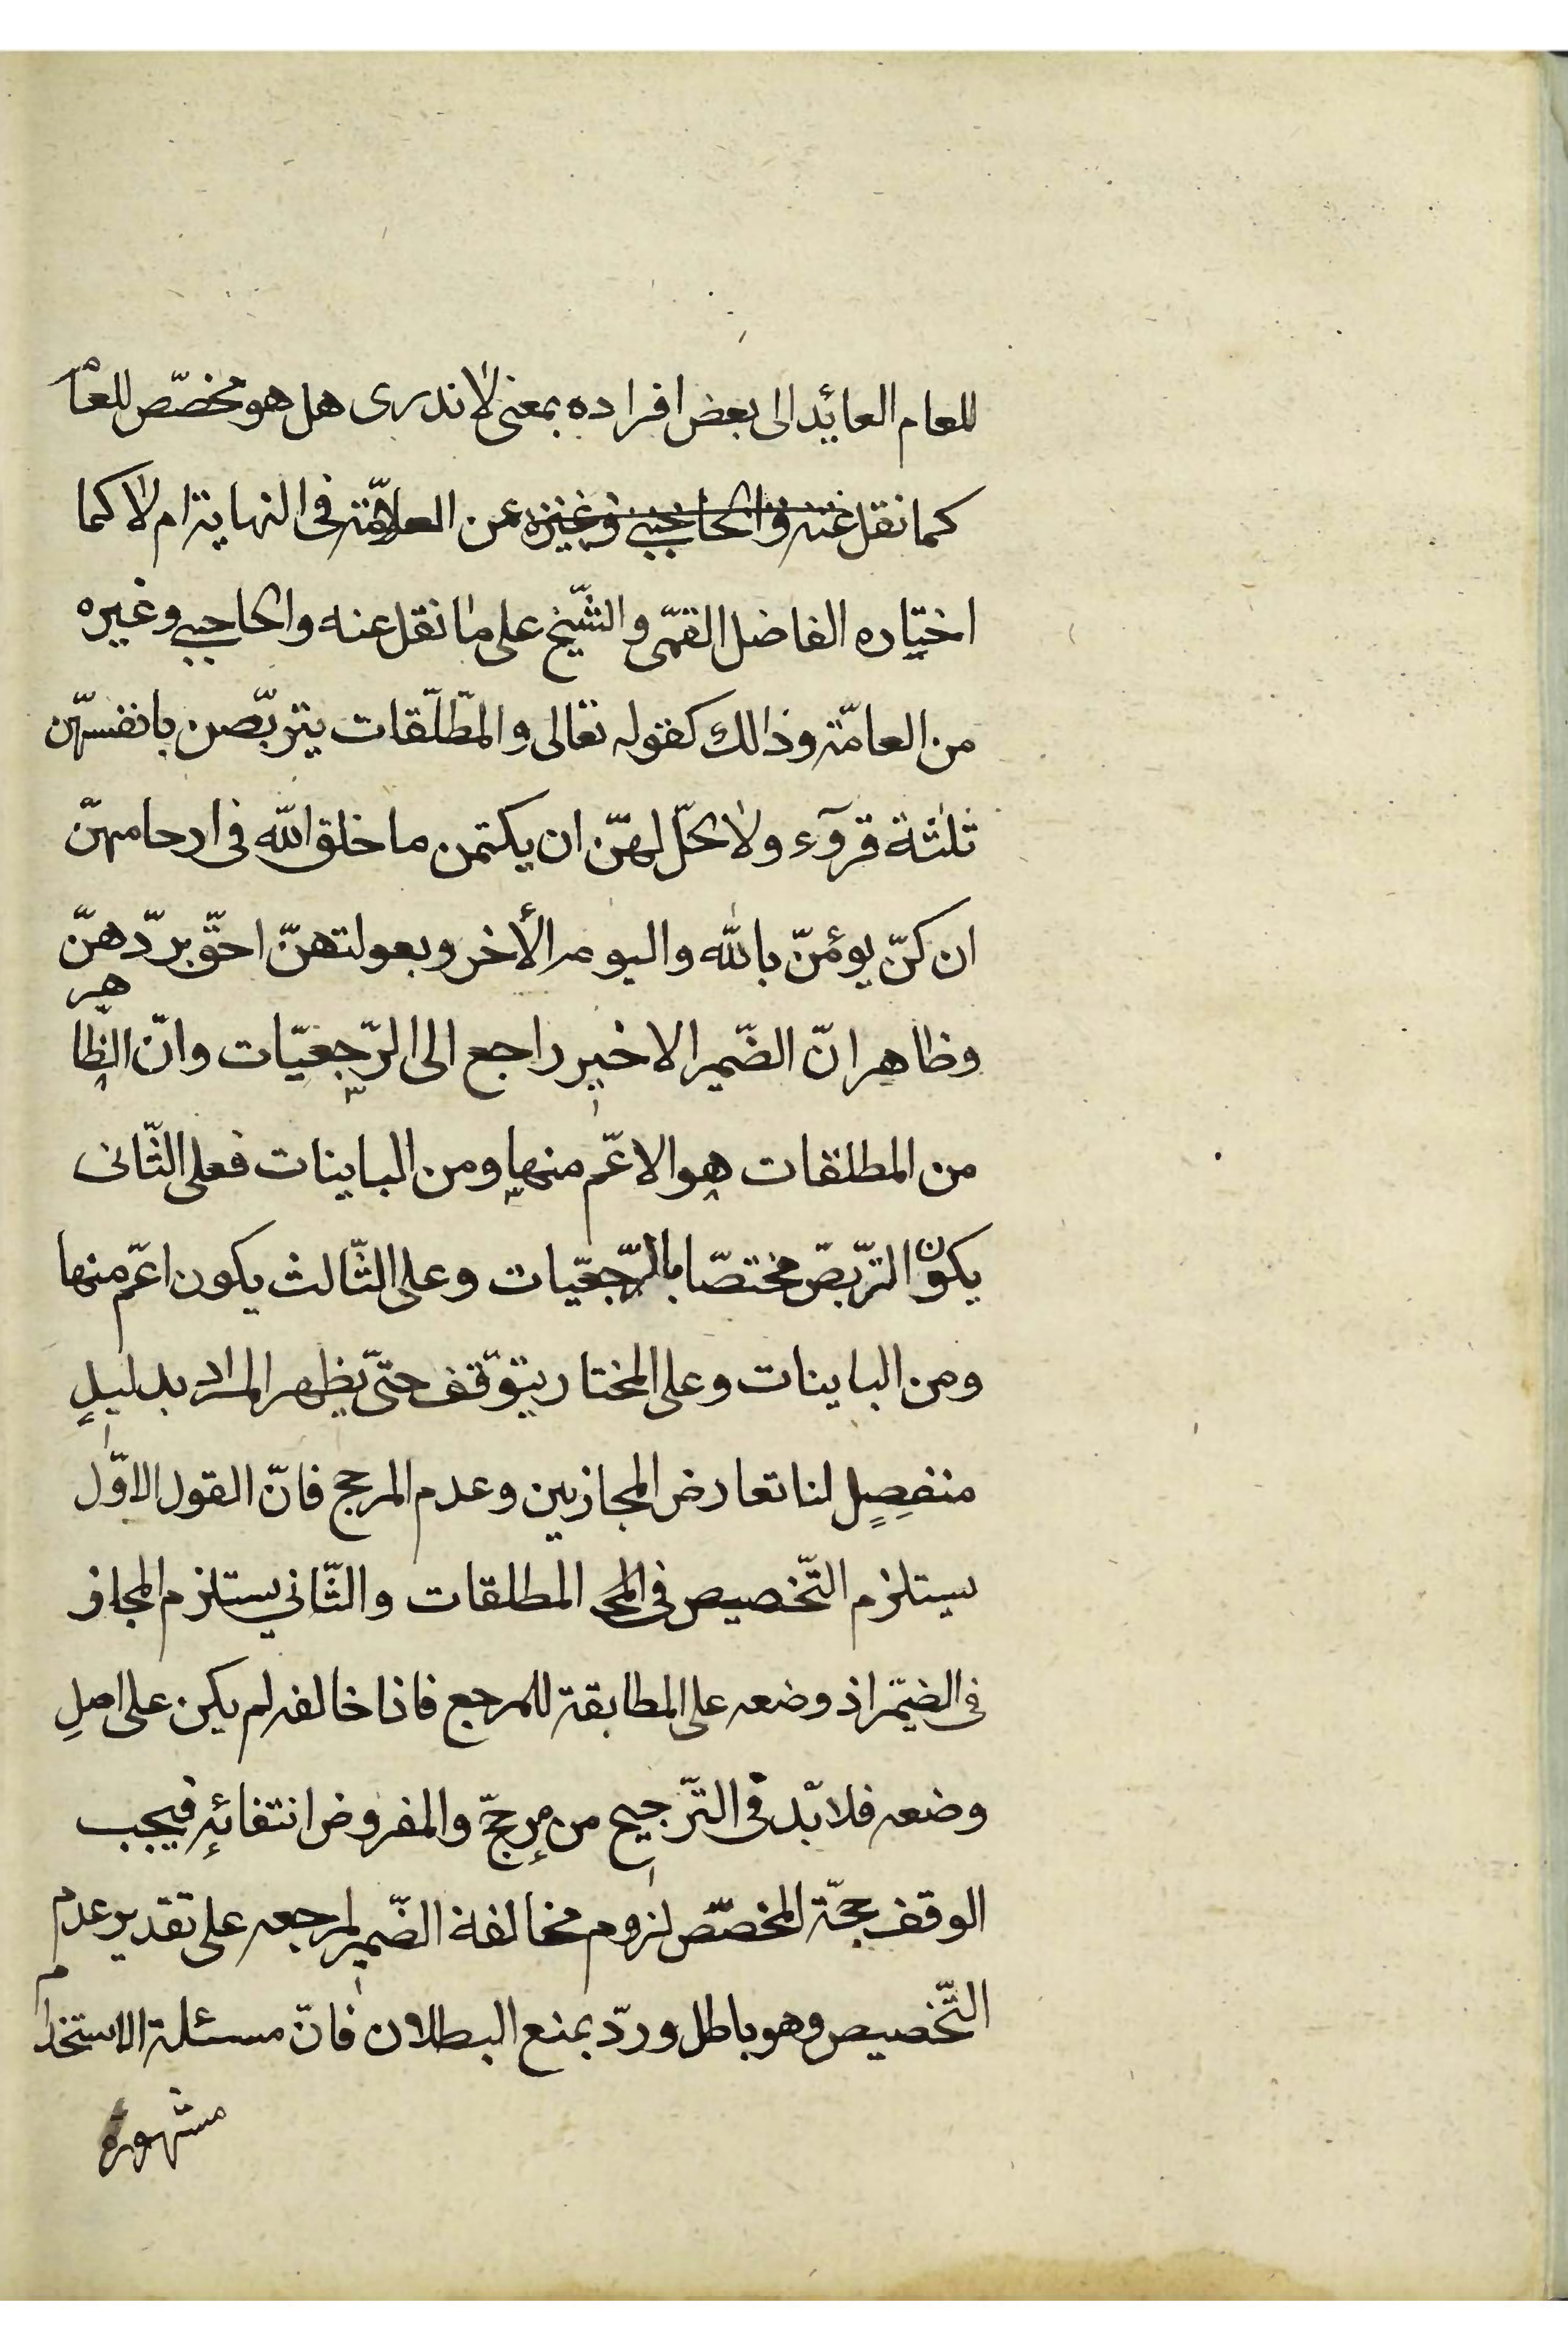 للعام العائد الى بعض افراده بمعنى لا ندرى هل هو مخصّص للعام
كما نقل عنه والحاجبي وغيره عن العلامّة فى النهاية ام لا كما
اختياره الفاضل القمّى والشّيخ على ما نقل عنه والحاجبي وغيره
من العامّة وذالك كقوله تعالى والمطّلّقات يتربّصن بانفسهّن
ثلثة قروٓء ولا يحلّ لهنّ ان يكتمن ما خلق اللّه فى ارحامهنّ
ان كنّ يؤمنّ باللّه واليوم الأخر وبعولتهنّ احقّ بردّهنّ
وظاهر انّ الضّمير الاخير راجع الى الرّجعيّات وانّ الظّاهر
من المطلقات هو الاعّم منها ومن الباينات فعلى الثّانى
يكون التّربصّ مختصّا بالرّجعيّات وعلى الثّالث يكون اعّم منها
ومن الباينات وعلى المختار يتوّقف حتىّ يظهر المراد بدليلٍ
منفصِلٍ لنا تعارض المجازيين وعدم المرجح فانّ القول الاوّل
يستلزم التّخصيص فى المطلقات والثّاني يستلزم المجاز
فى الضيمّر اذ وضعه على المطابقة للمرجع فاذا خالفه لم يكن على اصلِ
وضعه فلا بّد فى التّرجيح من مرجحّ والمفروض انتفائِه فيجب
الوقف حجّة المخصّص لزوم مخالفة الضّمير لمرجعه على تقدير عدم
التّخصيص وهو باطل وردّ بمنع البطلان فانّ مسئلة الاستخدام
مشهورة